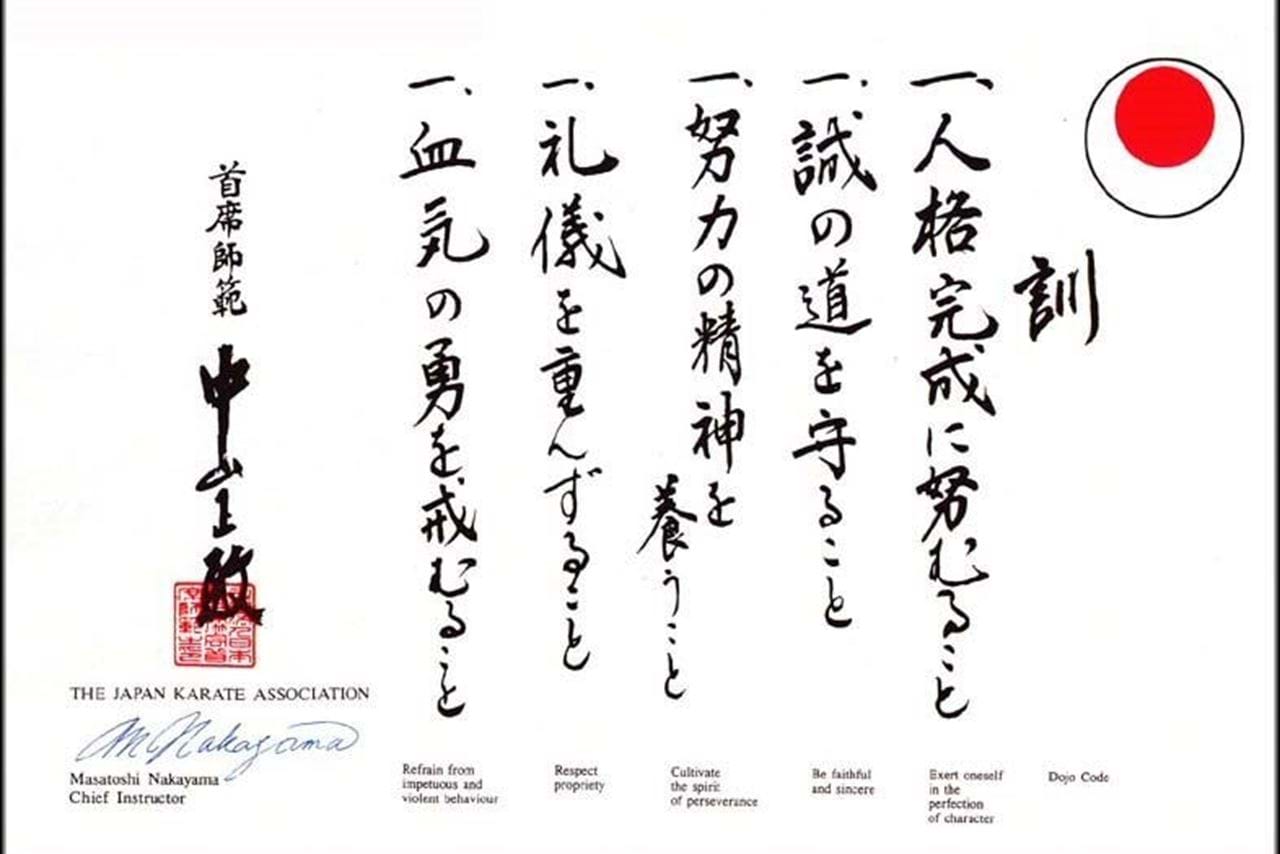 訓
一、人格完成に努むること
一、誠の道を守ること
一、努力の精神を
養うこと
一、礼儀を重んずること
一、血気の勇を戒むること
首席師範
中山正敏
THE JAPAN KARATE ASSOCIATION
M Nakayama
Masatoshi Nakayama
Chief Instructor
Refrain from
impetuous and
violent behaviour
Respect
propriety
Cultivate
the spirit
of perseverance
Be faithful
and sincere
Exert oneself
in the
perfection
of character
Dojo Code